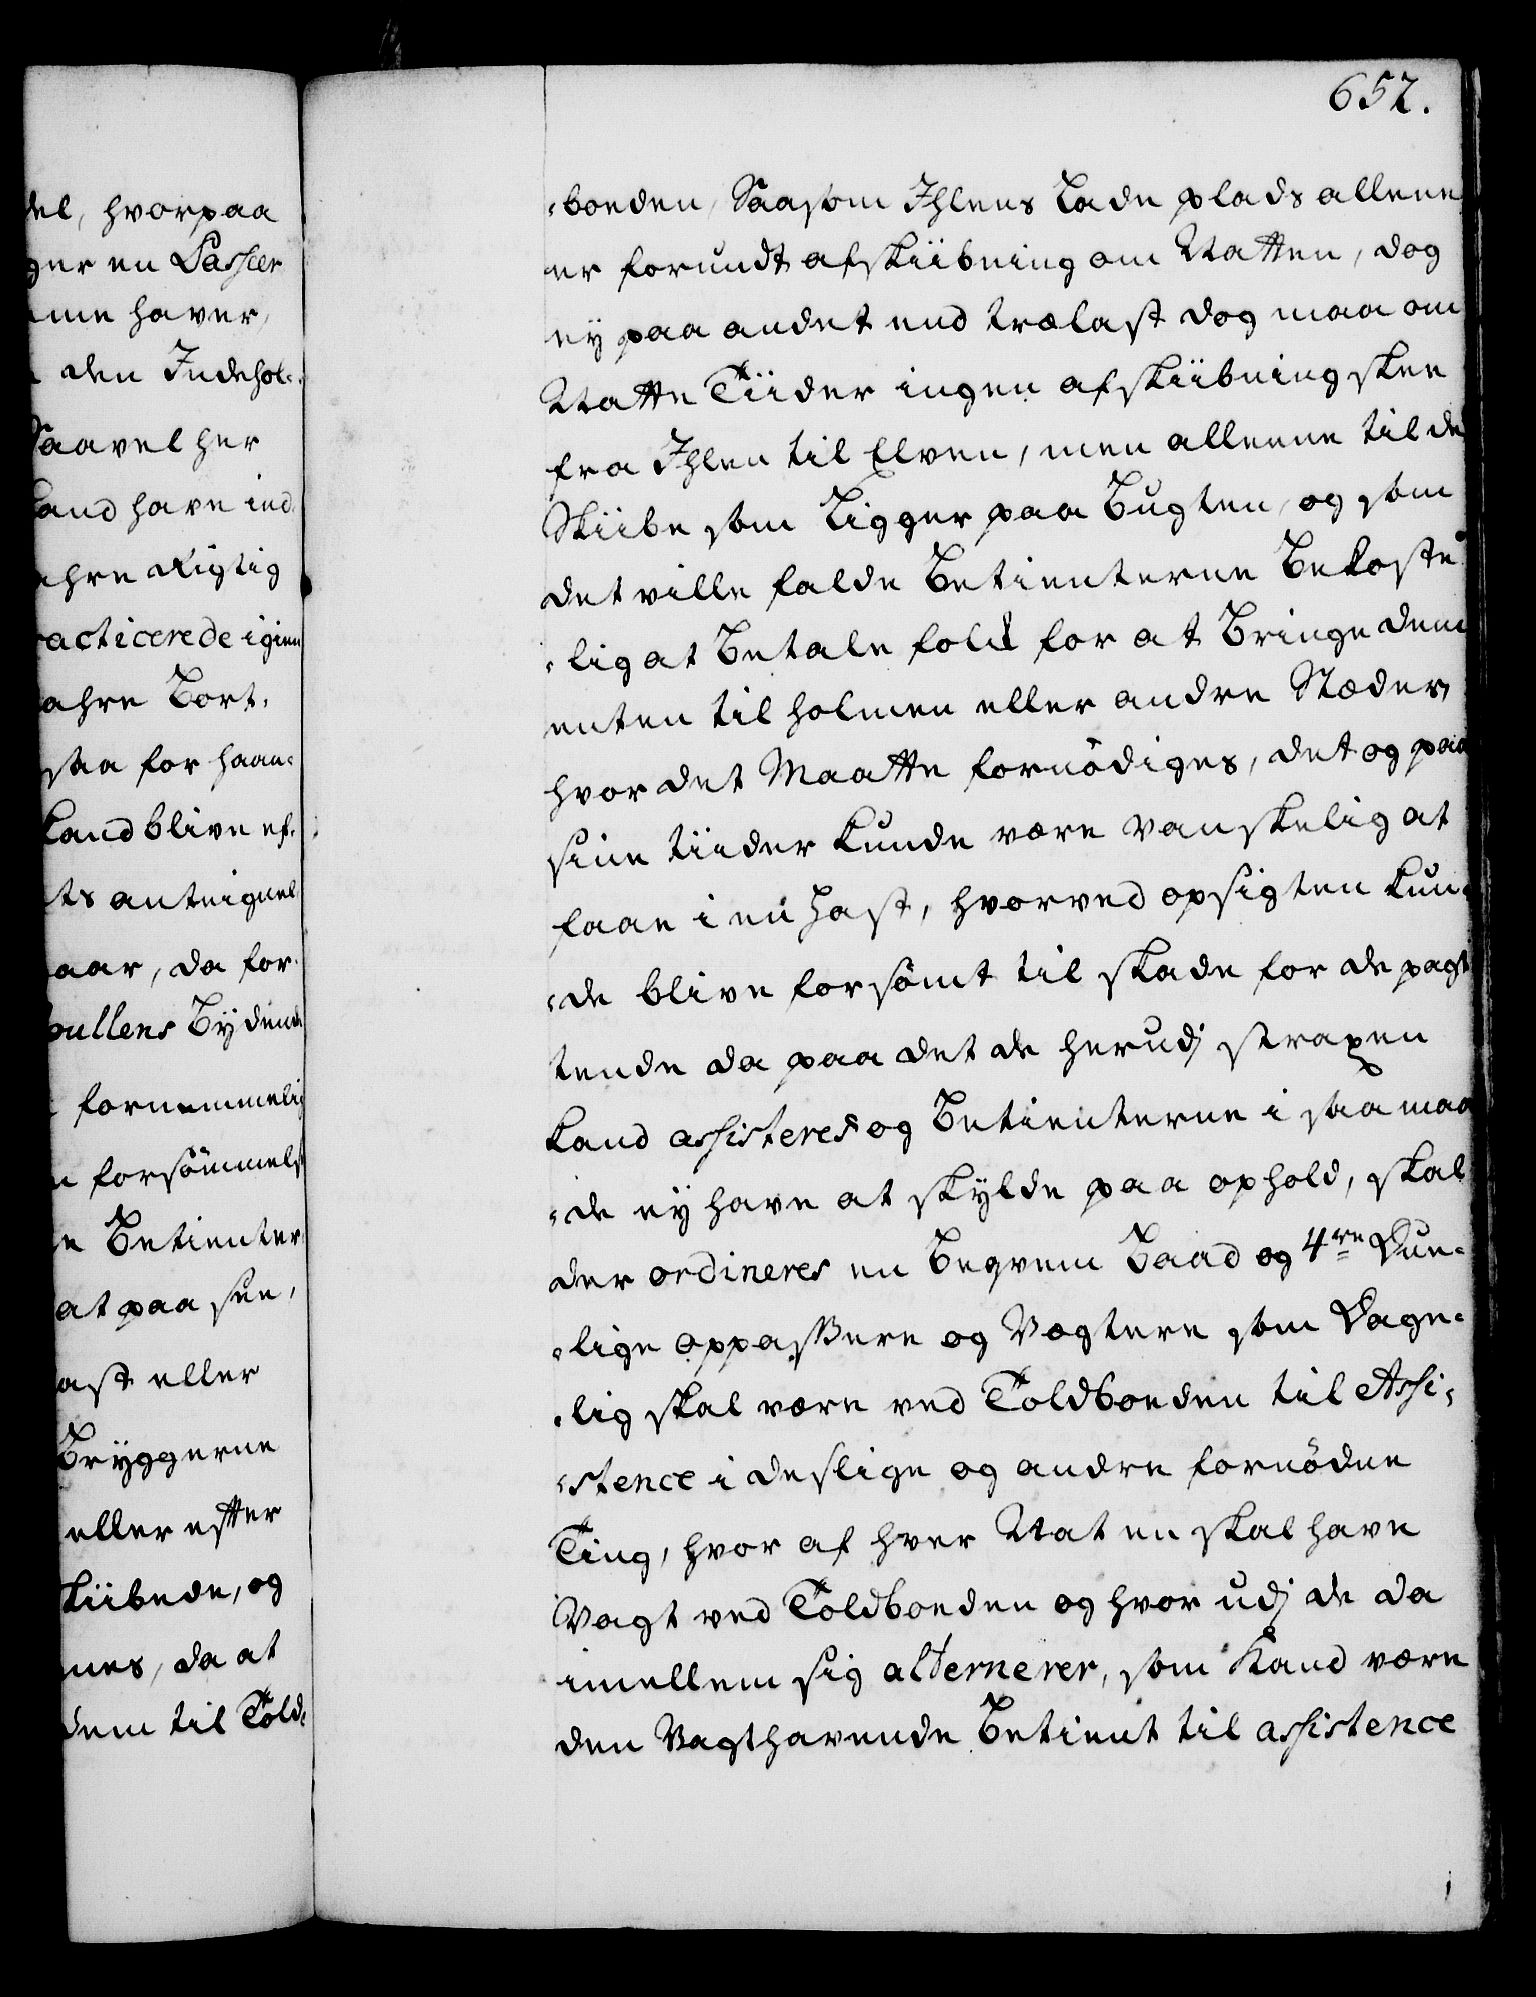 del, hvorpaa
ger en Passeer
me haver,
den Indehol-
Saavel her
Land have ind
ahre Rigtig
racticerede igien
ahre Bort,
staa for haan-
Land blive ef-
ts anteignel
aar, da for-
bullens Bydende
fornemmelig
forsömmelse
e Betienter
at paa see,
ast eller
Bryggerne
eller efter
kiibede, og
nes, da at
dem til Told-
652.
-boeden, Saasom Ihlens Lade plads alleene
er forundt afskiibning om Natten, dog
ey paa andet end trælast dog maa om
Natte Tiider ingen afskiibning skee
fra Ihlen til Elven, men alleene til de
Skiibe som Ligger paa Bugten, og som
det ville falde Betienterne Bekoste-
-lig at Betale folk for at Bringe dem
enten til holmen eller andre Stæder,
hvor det Maatte fornödiges, det og paa
sine tiider kunde være vanskelig at
faae i en Hast, hvorved opsigten kun-
-de blive forsömt til skade for de pagt
tende da paa det de herudj straxen
kand assisteres og Betienterne i saa maa
-de ey have at skylde paa ophold, skal
der ordineres en Beqvem Baad og 4re Due-
-lige oppassere og Vægtere som Dage-
-lig skal være ved Toldboeden til Assi-
-stence i deslige og andre fornödne
Ting, hvor af hver Nat en skal have
Vagt ved Toldboeden og hvor udj de da
imellem sig alternerer, som Kand være
den Vagthavende Betient til assistence